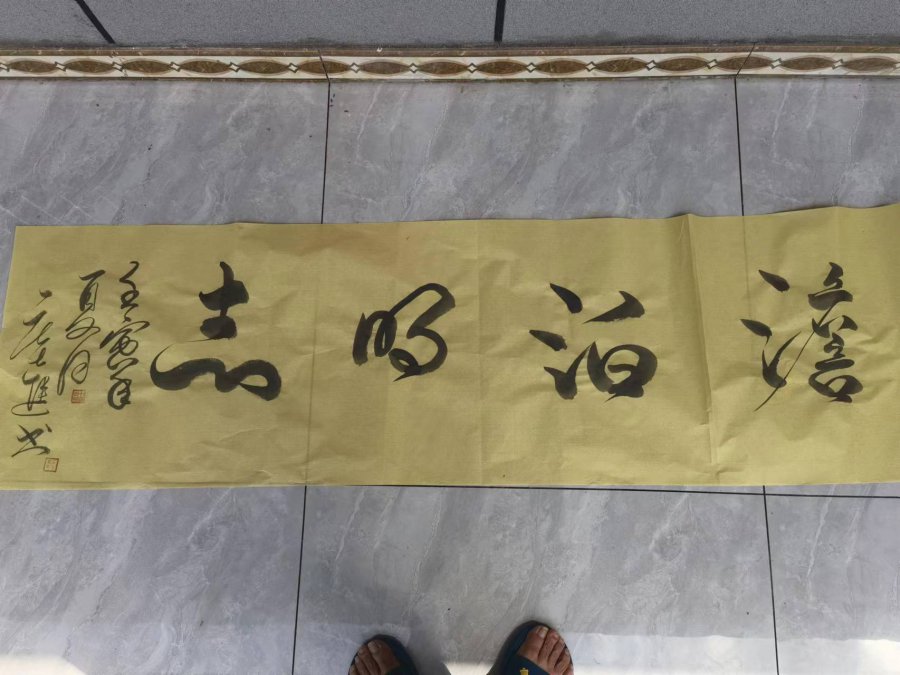 澹泊明志
壬寅年
夏月
士進书